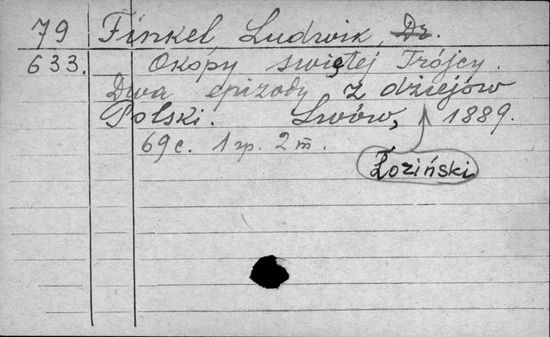 79 Finkel Ludwik, Dr.
633. Okópy świętej Trójcy.
Dwa epizody z dziejów
Polski. Lwów, 1889.
69 c. 1 rp. 2 m̄.
Łoziński